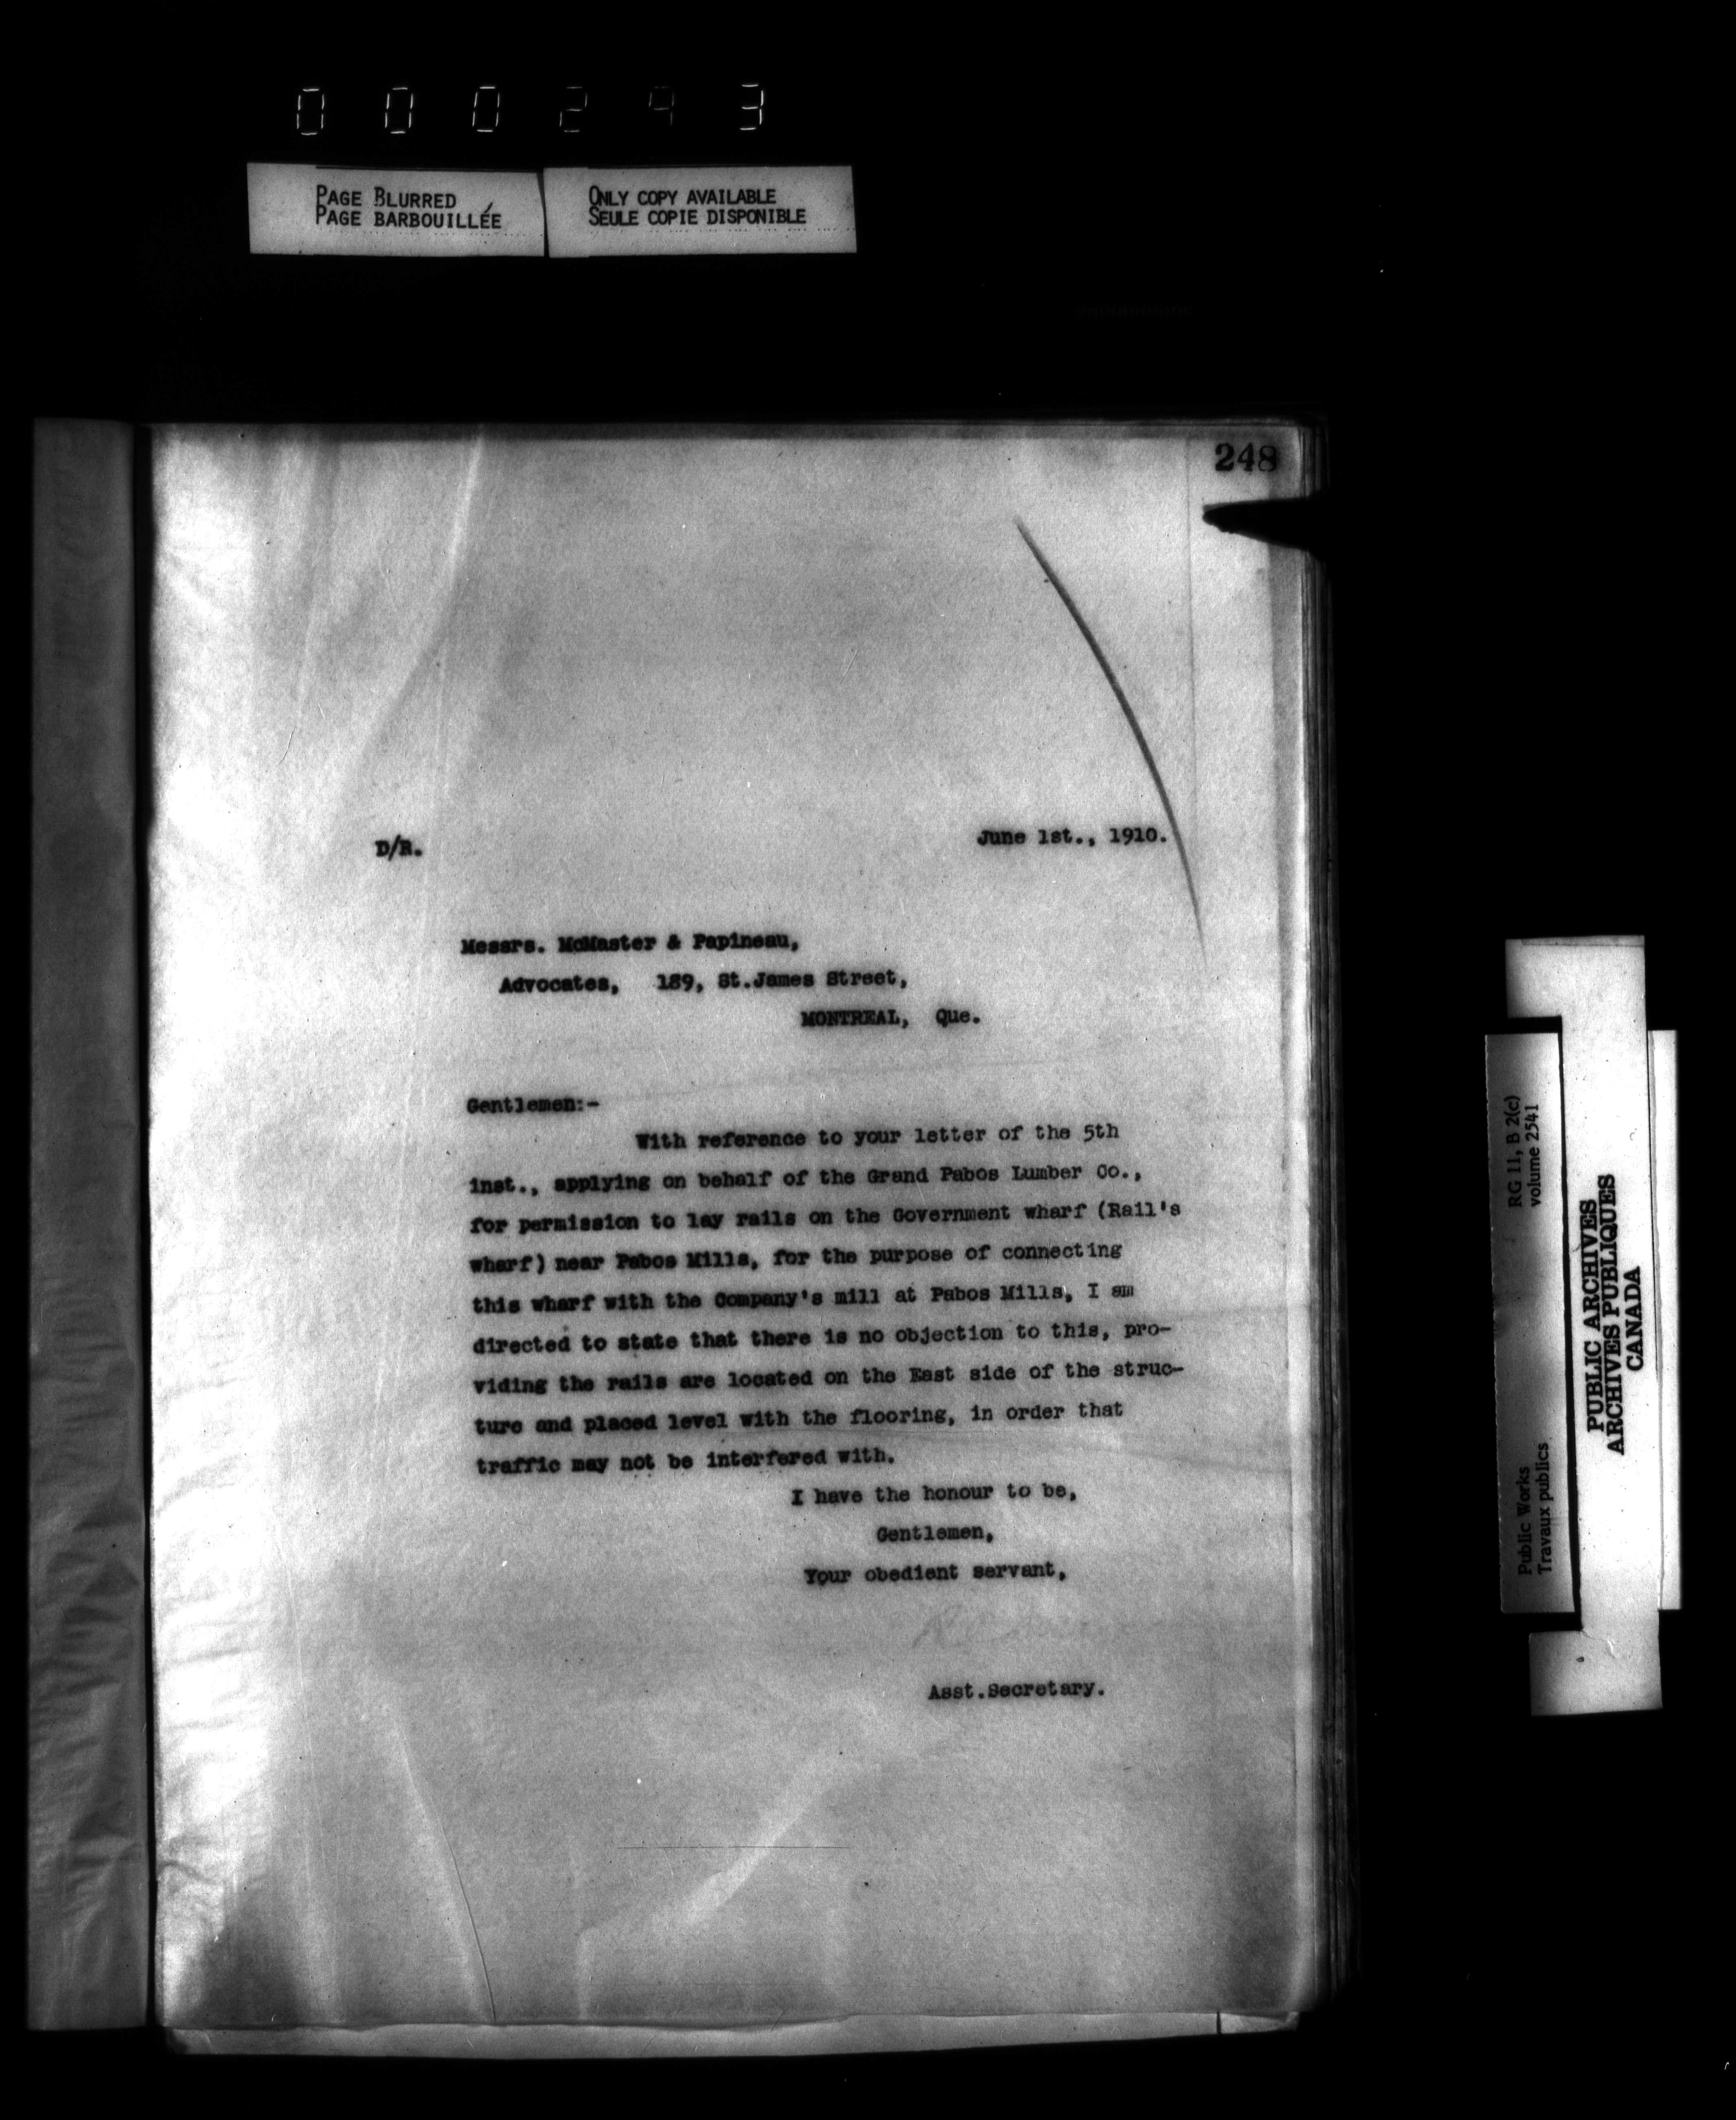 000293
PAGE BLURRED
PAGE BARBOUILLÉE
ONLY COPY AVAILABLE
SEULE COPIE DISPONIBLE
248
D/R.
June 1st., 1910.
Messrs. McMaster & Papineau,
Advocates, 189, St.James Street,
MONTREAL, Que.
Gentlemen:-
With reference to your letter of the 5th
inst., applying on behalf of the Grand Pabos Lumber Co.,
for permission to lay rails on the Government wharf (Rail's
wharf) near Pabos Mills, for the purpose of connecting
this wharf with the Company's mill at Pabos Mills, I am
directed to state that there is no objection to this, pro-
viding the rails are located on the East side of the struc-
ture and placed level with the flooring, in order that
traffic may not be interfered with.
I have the honour to be,
Gentlemen,
Your obedient servant,
Asst.Secretary.
Public Works
Travaux publics
RG 11, B 2(c)
volume 2541
PUBLIC ARCHIVES
ARCHIVES PUBLIQUES
CANADA